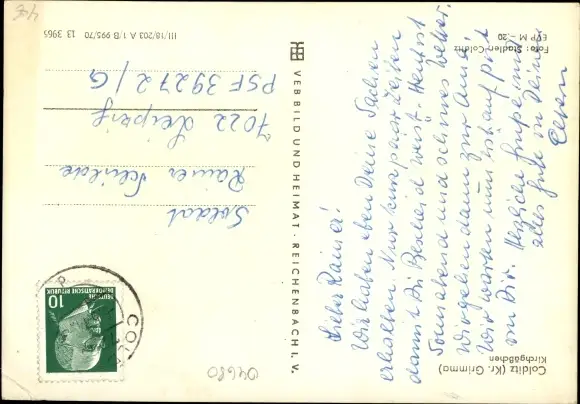 Colditz (Kr. Grimma)
Kirchgäßchen
Lieber Rainer!
Wir haben eben Deine Sachen
erhalten. Nur kurz paar Zeilen
damit Du Bescheid weißt. Heut ist
Sonnabend und schönes Wetter.
Wir gehen dann zur Oma.
Wir warten nun ist auf post
von Dir. Herzliche Grüße, und
alles gute von Deinen
Eltern
VEB BILD UND HEIMAT · REICHENBACH I. V.
Foto: Stadler-Colditz
EVP M -.20
III/18/203 A 1/B 995/70 13 3965
Soldat
Rainer Schilde
7022 Leipzig
PSF 39272/G
DEUTSCHE
DEMOKRATISCHE REPUBLIK
10
COL
04680
4€